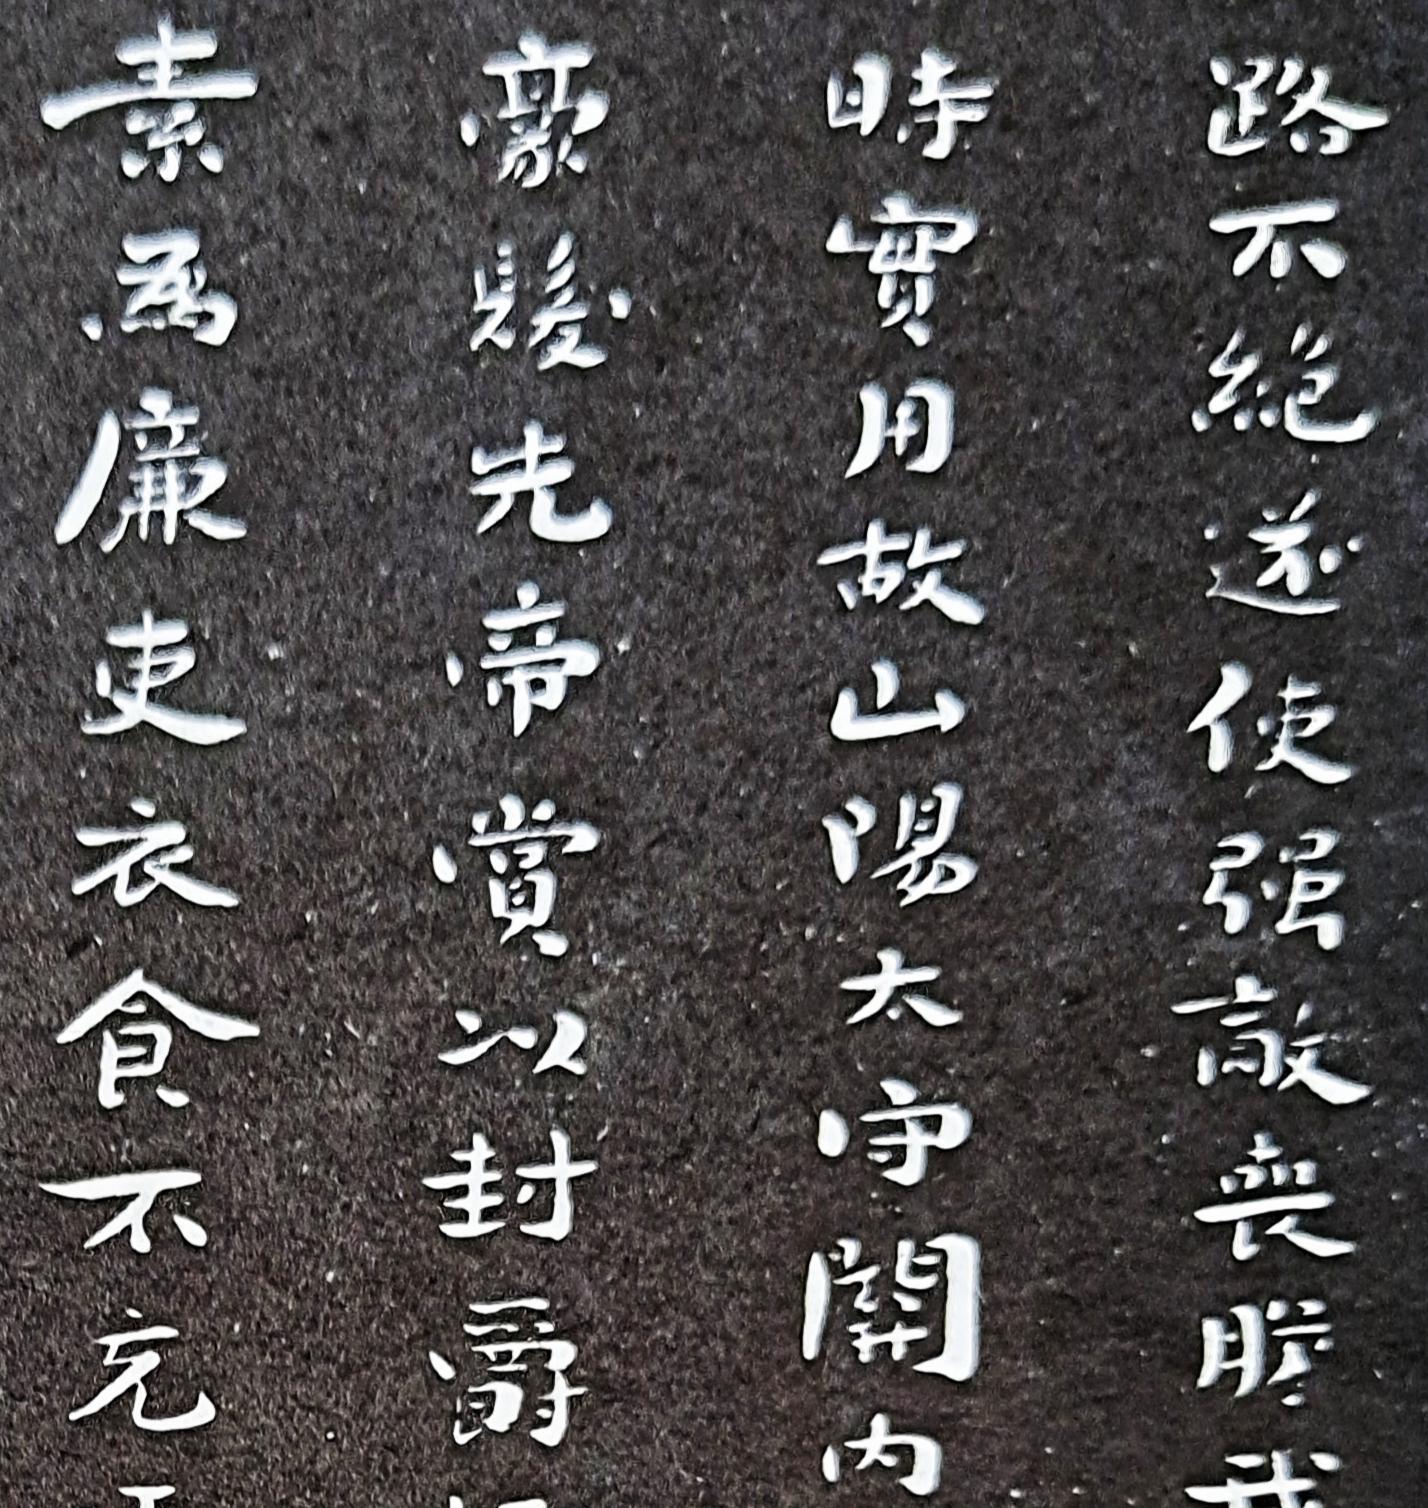 路不絕遂使强敵喪膽我
時實用故山陽太守關內
豪髮先帝賞以封爵
素為廉吏衣食不充